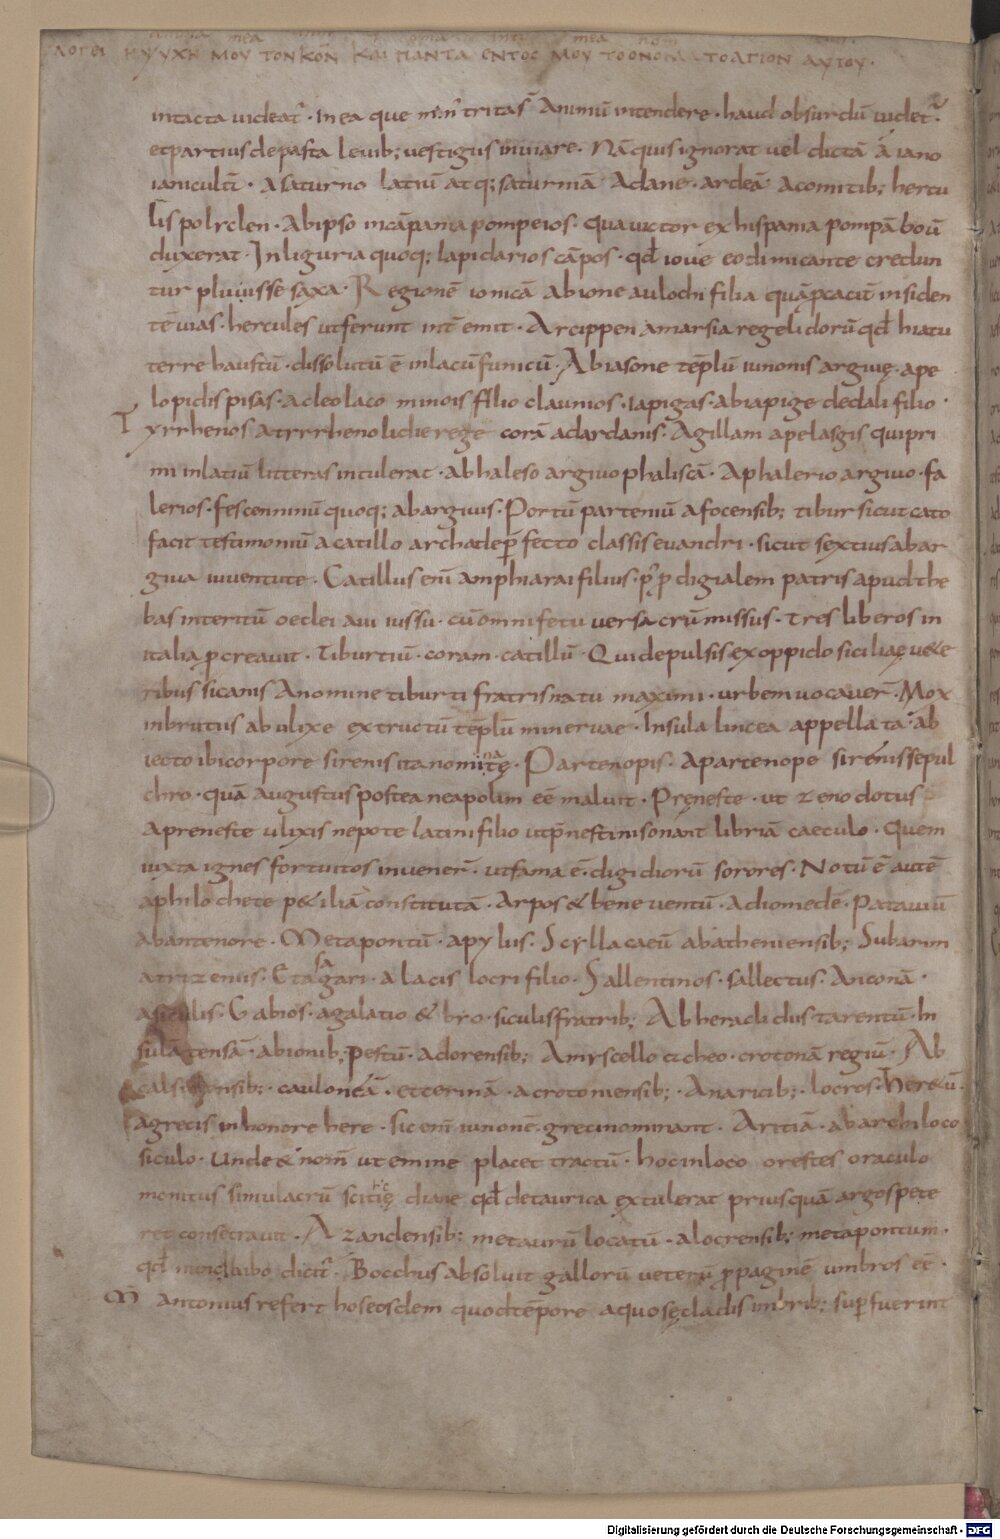 mea mea nom
ΛΟΓΕΙ ΗΨΥΧΗ ΜΟΥ ΤΟΝΚΟΝ ΚΑΙ ΠΑΝΤΑ ΕΝΤΟC ΜΟΥ ΤΟΟΝΟΜΑ ΤΟΑΓΙΟΝ ΑΥΤΟΥ·
intacta uideat᷑· In ea que min᷑ tritas᷑ Animū intendere· haud obsurdū uidet᷑·
etpartius depasta leuib; uestigus inuiare· Nā quis ignorat uel dictā ā iano
ianicultī· A saturno latiū atq; saturniā A dane· ardeā A comitib; hercu
lis polrclen· Ab ipso in cāpania pompeios· Qua uictor ex hispania pompā boū
duxerat· In liguria quoq; lapidarios cāpos· qđ ioue eo dimicante credun
tur pluiuisse saxa· Regionē ionicā ab ione aulochi filia quā pcacit᷑ insiden
tē uias· hercules ut ferunt int᷑emit· Arcippen amarsia rege lidorū qđ hiatu
terre haustū· dissolutū ē in lacū funicū· Ab iasone tēplū iunonis arguię· ape
lopidis pisas· a cleolaco minois filio daunios· Iapigas· ab iapige dedali filio·
Tyrrhenos atrrrheno lidie rege corā a dardanis· Agillam a pelasgis qui pri
mi in latiū litteras intulerat· ab haleso argiuo phaliscā· A phalerio argiuo· fa
lerios· fescenninū quoq; ab arguis· Portū parteniū a focensib; tibur sicut cato
facit testimoniū a catillo archade p̄fecto classis euandri· sicut sextius ab ar
giua iuuentute· Catillus enī amphiarai filius· p̱ p̱ digialem patris apud the
bas interitū oeclei aui iussu· cū omni fetu uersa crū missus· tres liberos in
italia p̱creauit· Tiburtiū· coram· catillū· Qui depulsis ex oppido siciliaę uete
ribus sicanis A nomine tiburti fratris natu maximi· urbem uocauer̄· Mox
inbrutus ab ulixe extructū tēplū mineruae· Insula lincea appellata· ab
iecto ibi corpore sirenis ita nominatę· Partenopis· A partenope sirenis sepul
chro· quā augustus postea neapolim eē maluit· Pręneste· ut zenodotus
A preneste ulixis nepote latini filio ut p̄nestini sonant libriā caeculo· Quem
iuxta ignes fortuitos inuener̄· ut fama ē· digidiorū sorores· Notū ē autē
a philochete petiliā constitutā· Arpos & beneuentū· A diomedē· Patauiū
Ab antenore· Metapontū· apylus· Scyllacaeū ab atheniensib; Subarim
a trizenus· Et a sagari· a lacis locri filio· Sallentinos· sallectus· Anconā·
a siculis· Gabios· a galatio & bro· siculis fratrib; Ab heraclidis· tarentū· In
sulā tensā· ab ionib; pestū· a dorensib; A myrscello acheo· crotonā regiū· Ab
calsidensib;· cauloneā· et terinā· a crotoniensib;· A naricib;· locros· heretū·
a grecis in honore here· sic enī iunonē· greci nominant· Aritiā· ab archiloco
siculo· Unde & nom̄ ut emine placet tractū· hoc in loco orestes oraculo
monitus simulacrū scitię diane qđ de taurica extulerat priusquā argos pete
ret consecrauit· A zandensib; metaurū locatū· a locrensib; metapontum·
qđ nunc bibo dicit᷑· Bocchus absoluit gallorū ueterū p̱paginē umbros eē·
M Antonius refert hos eosdem quod tēpore aquosę cladis imbrib; sup̱fuerint
Digitalisierung gefördert durch die Deutsche Forschungsgemeinschaft - DFG